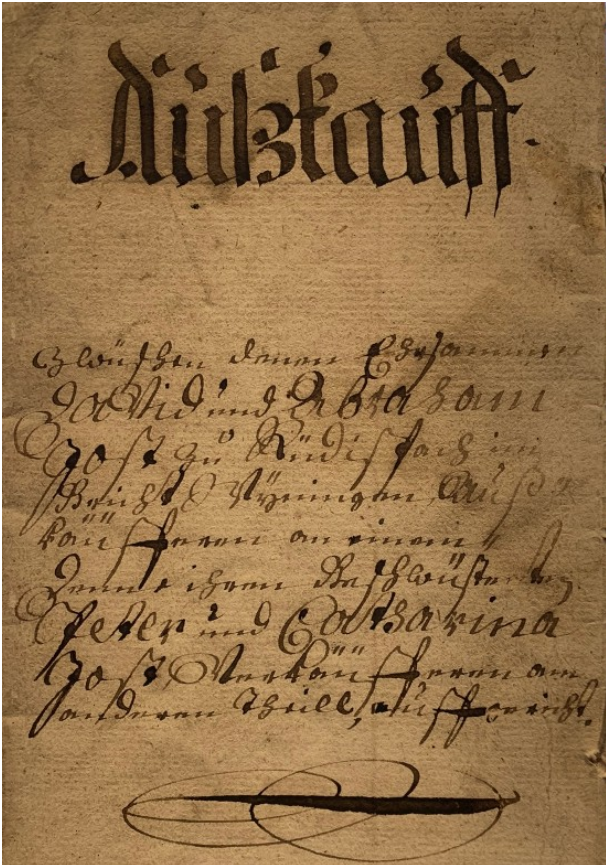 Außkauff.
Zwüschen denen Ehrsammen
David und Abraham
Jost zu Rüdisbach im
Gricht Wÿningen, Auß-
käüfferen an einem,
Denne ihren Geschwüsterten
Peter und Catharina
Jost, Verkäüfferen am
anderen Theill, auffgericht.